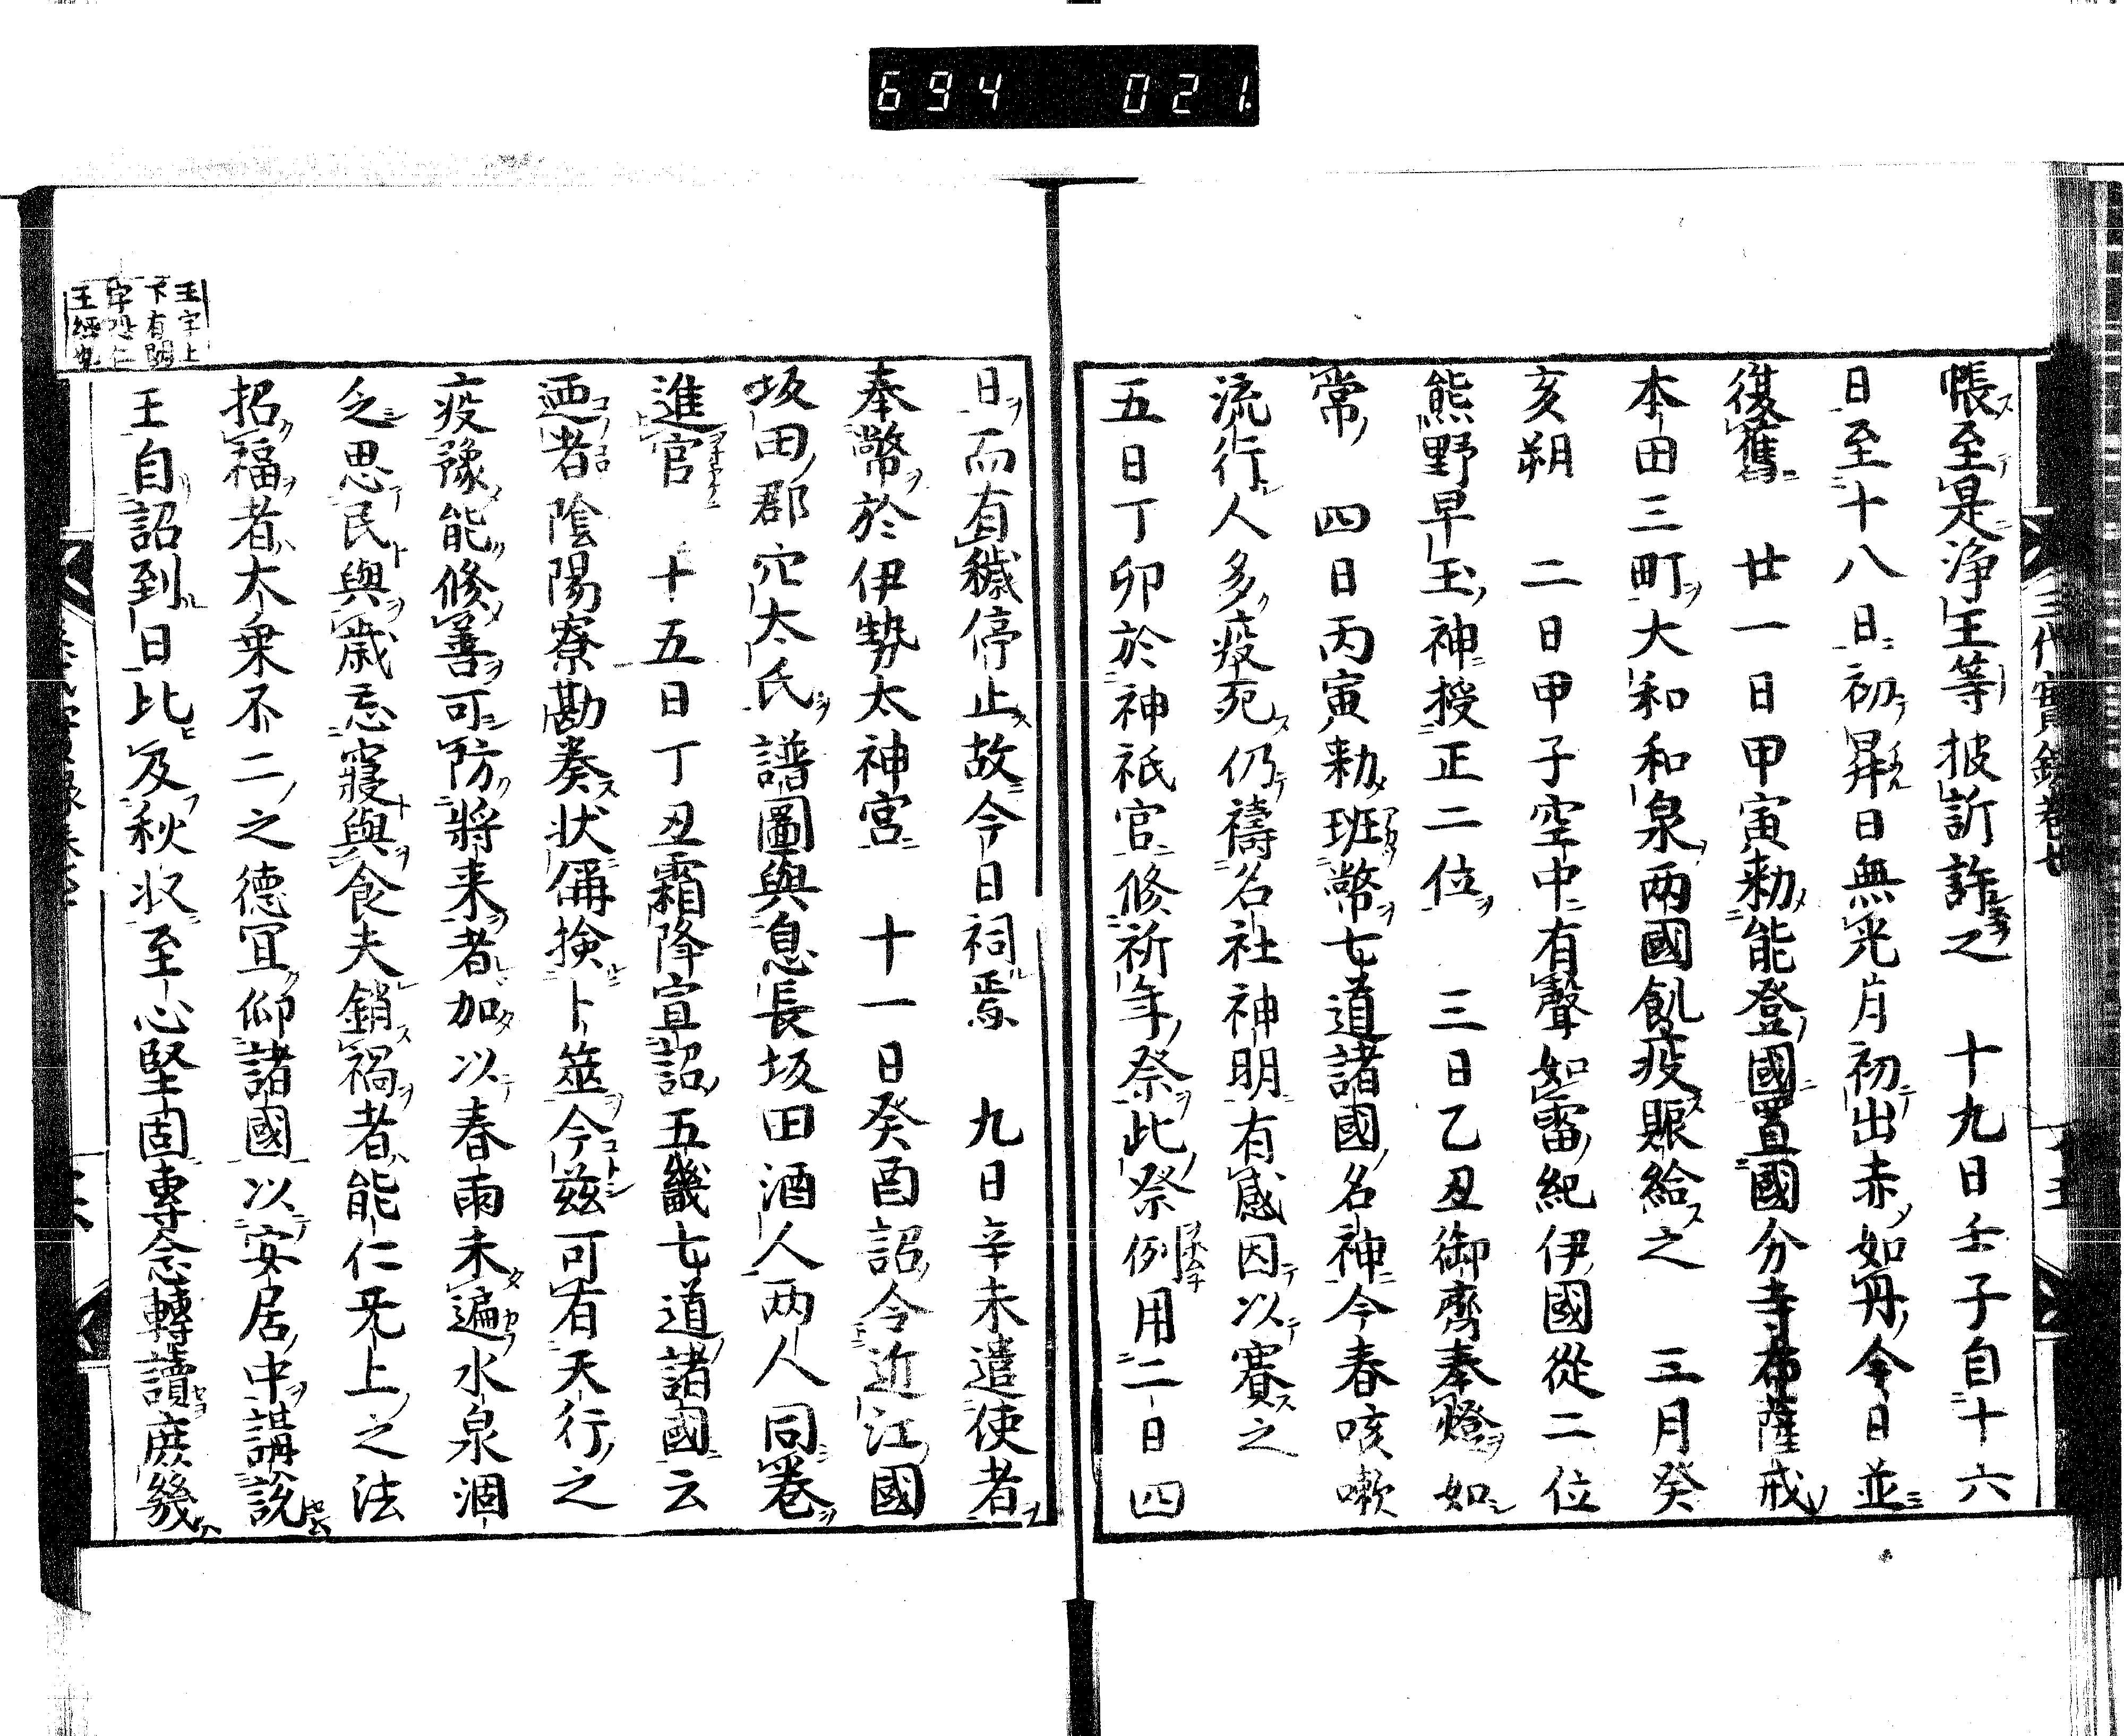 694 021.
三代實錄卷廿
帳至是浄王等披訢訴之 十九日壬子自十六
日至十八日初昇日無光月初出赤如丹今日並
復舊 廿一日甲寅勅能登國置國分寺布薩戒
本田三町大和和泉兩國飢疫賑給之 三月癸
亥朔 二日甲子空中有聲如雷紀伊國從二位
熊野早玉神授正二位 三日乙丑御齋奉燈如
常 四日丙寅勅班幣七道諸國名神今春咳嗽
流行人多疫死仍禱名社神明有感因以賽之
五日丁卯於神祇官修祈年祭此祭例用二日四
日而有穢停止故今日祠焉 九日辛未遣使者
奉幣於伊勢太神宮 十一日癸酉詔令近江國
坂田郡穴太氏譜圖與息長坂田酒人两人同卷
進官 十五日丁丑霜降宣詔五畿七道諸國云
迺者陰陽寮勘奏状偁撿卜筮今茲可有天行之
疫豫能修善可防將来者加以春雨未遍水泉涸
乏思民與歳忘寢與食夫銷禍者能仁旡上之法
招福者大乗不二之德冝仰諸國以安居中講說
王自詔到日比及秋收至心堅固專念轉讀庶幾
王字上
下有闕
字恐仁
王經也